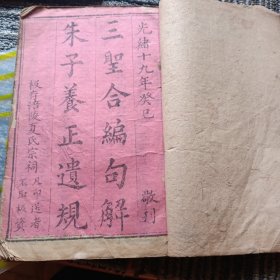 光緒十九年癸巳
敬刊
三聖合編句解
朱子養正遺規
板存涪陵夏氏宗祠
凡印送者
不取板資